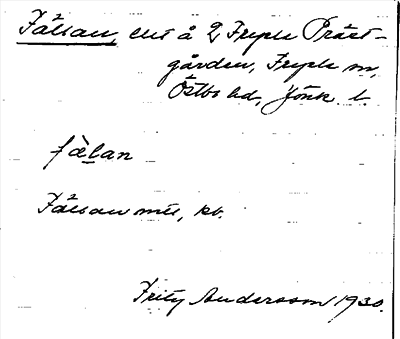 Fålsan, ens å 2 Fryele Präst-
gården, Fryele sn,
Östbo hd, Jönk. l.
fàlan
Fålsan mts, kb.
Fritz Andersson 1930.